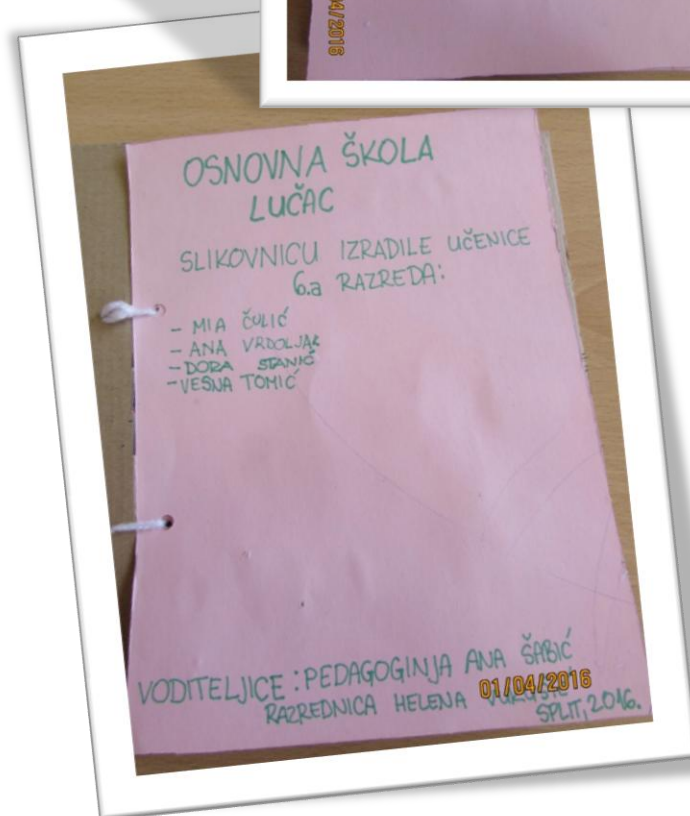 04/2016
OSNOVNA ŠKOLA
LUČAC
SLIKOVNICU IZRADILE UČENICE
6.a RAZREDA:
- MIA ČULIĆ
- ANA VRDOLJAK
- DORA STANIĆ
- VESNA TOMIĆ
VODITELJICE: PEDAGOGINJA ANA ŠABIĆ
RAZREDNICA HELENA
01/04/2016
SPLIT, 2016.